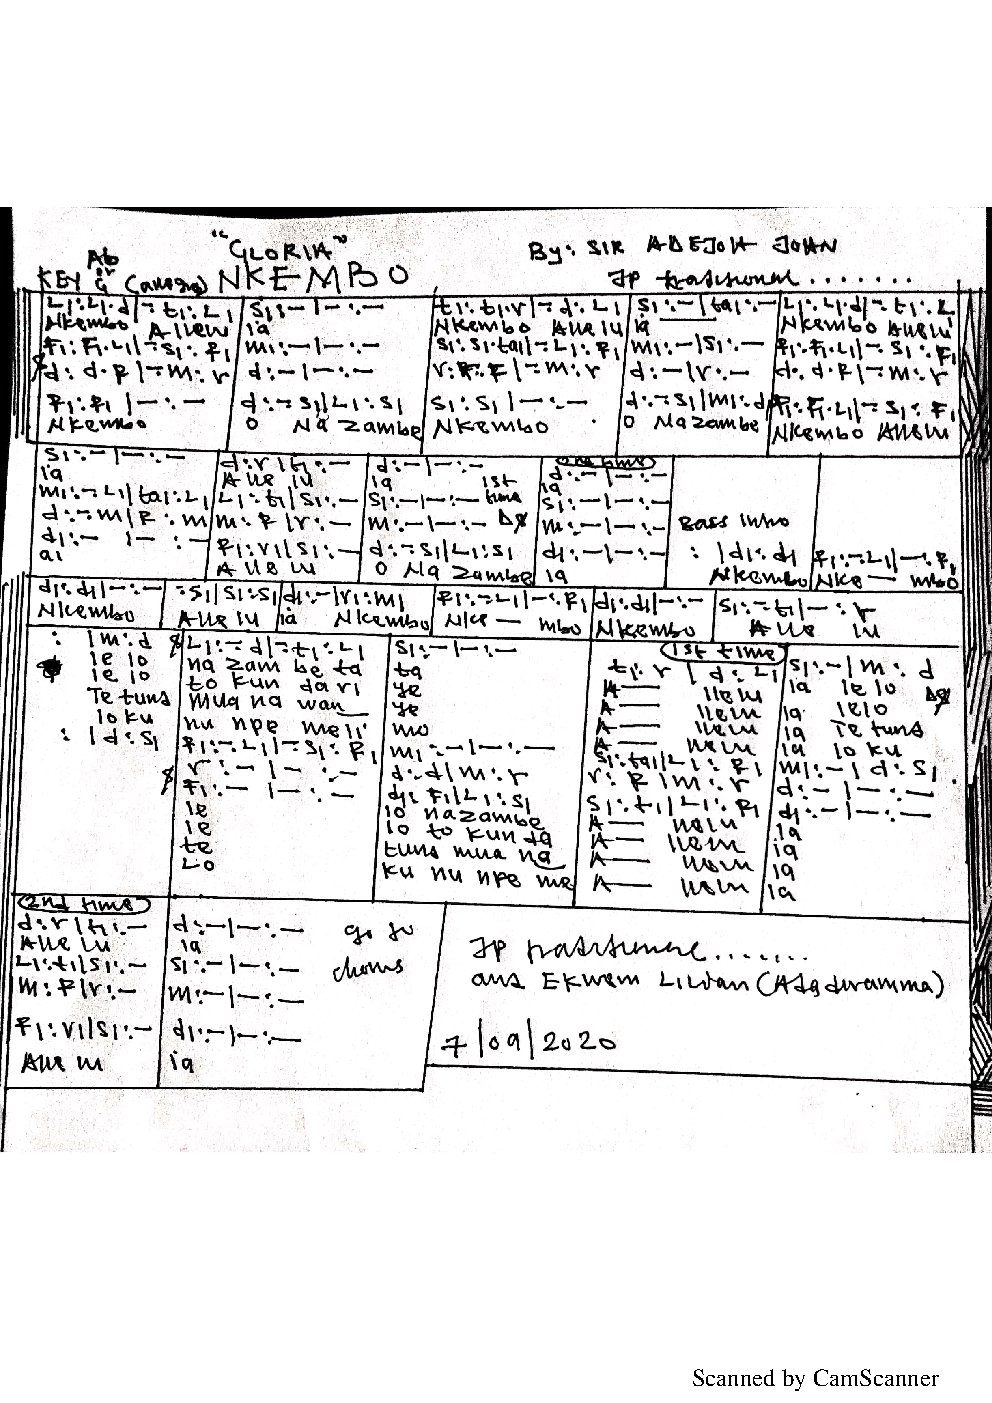 "GLORIA"
By: SIR ADEJOH JOHN
Ab
or
KEY G NKEMBO
JP traditionel.......
L₁:L₁.d|-:t₁:L₁ S₁:-|-:- t₁:t₁.r|-:d:L₁ S₁:-|ta₁:- L₁:L₁.d|-:t₁:L
Nkembo Allelu ia Nkembo Allelu ia Nkembo Allelu
F₁:F₁.L₁|-:S₁:F₁ m₁:-|-:- S₁:S₁.ta₁|-:L₁:F₁ m₁:-|S₁:- F₁:F₁.L₁|-:S₁:F₁
d:d.F|-:m:r d:-|-:- r:F.F|-:m:r d:-|r:- d:d.F|-:m:r
F₁:F₁|-:- d:-S₁|L₁:S₁ S₁:S₁|-:- d:-S₁|m:d F₁:F₁.L₁|-:S₁:F₁
Nkembo O Na Zambe Nkembo O Na Zambe Nkembo Allelu
S₁:-|-:- d:r|t₁:- d:-|-:- d:-|-:-
ia Alle lu ia 1st ia
m₁:-L₁|ta₁:L₁ L₁:t₁|S₁:- S₁:-|-:- time S₁:-|-:-
d:-m|F:m m:F|r:- m:-|-:- D$ m:-|-:- Bass intro
d₁:-|-:- F₁:r₁|S₁:- d:-S₁|L₁:S₁ d₁:-|-:- :|d₁:d₁ F₁:-L₁|-:F₁
ai Alle lu O Na Zambe ia Nkembo Nke— mbo
d₁:d₁|-:- -:S₁|S₁:S₁ d₁:-|r₁:m₁ F₁:-L₁|-:F₁ d₁:d₁|-:- S₁:-t₁|-:r
Nkembo Alle lu ia Nkembo Nke— mbo Nkembo Alle lu
1st time
:|m:d L₁:-d|-t₁:L₁ S₁:-|-:- t₁:r|d:L₁ S₁:-|m:d
le lo na zam be ta ta A— llelu ia le lo D$
le lo to kun da ri ye A— llelu ia lelo
Te tuna mua na wan ye A— llelu ia Te tuna
lo ku nu npe meli mo A— llelu ia lo ku
:|d:S₁ F₁:-L₁|-S₁:F₁ m₁:-|-:- S₁:ta₁|L₁:F₁ m₁:-|d:S₁
r:-|-:- d:d|m:r r:F|m:r d:-|-:-
F₁:-|-:- d₁:F₁|L₁:S₁ S₁:t₁|L₁:F₁ d₁:-|-:-
le lo nazambe A— llelu ia
le lo to kun da A— llelu ia
te tuna mua na A— llelu ia
Lo ku nu npe me A— llelu ia
2nd time
d:r|t₁:- d:-|-:- go to
Alle lu ia
L₁:t₁|S₁:- S₁:-|-:- chorus
m:F|r:- m:-|-:-
F₁:r₁|S₁:- d₁:-|-:-
Alle lu ia
JP traditionel.......
and Ekwem Lilian
7/09/2020
Scanned by CamScanner